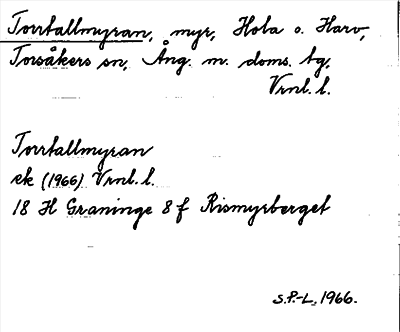 Torrtallmyran, myr, Hola o. Harv,
Torsåkers sn, Ång. m. doms. tg.
Vrnl. l.
Torrtallmyran
ek (1966) Vrnl. l.
18 H Graninge 8 f Rismyrberget
S.P.-L., 1966.